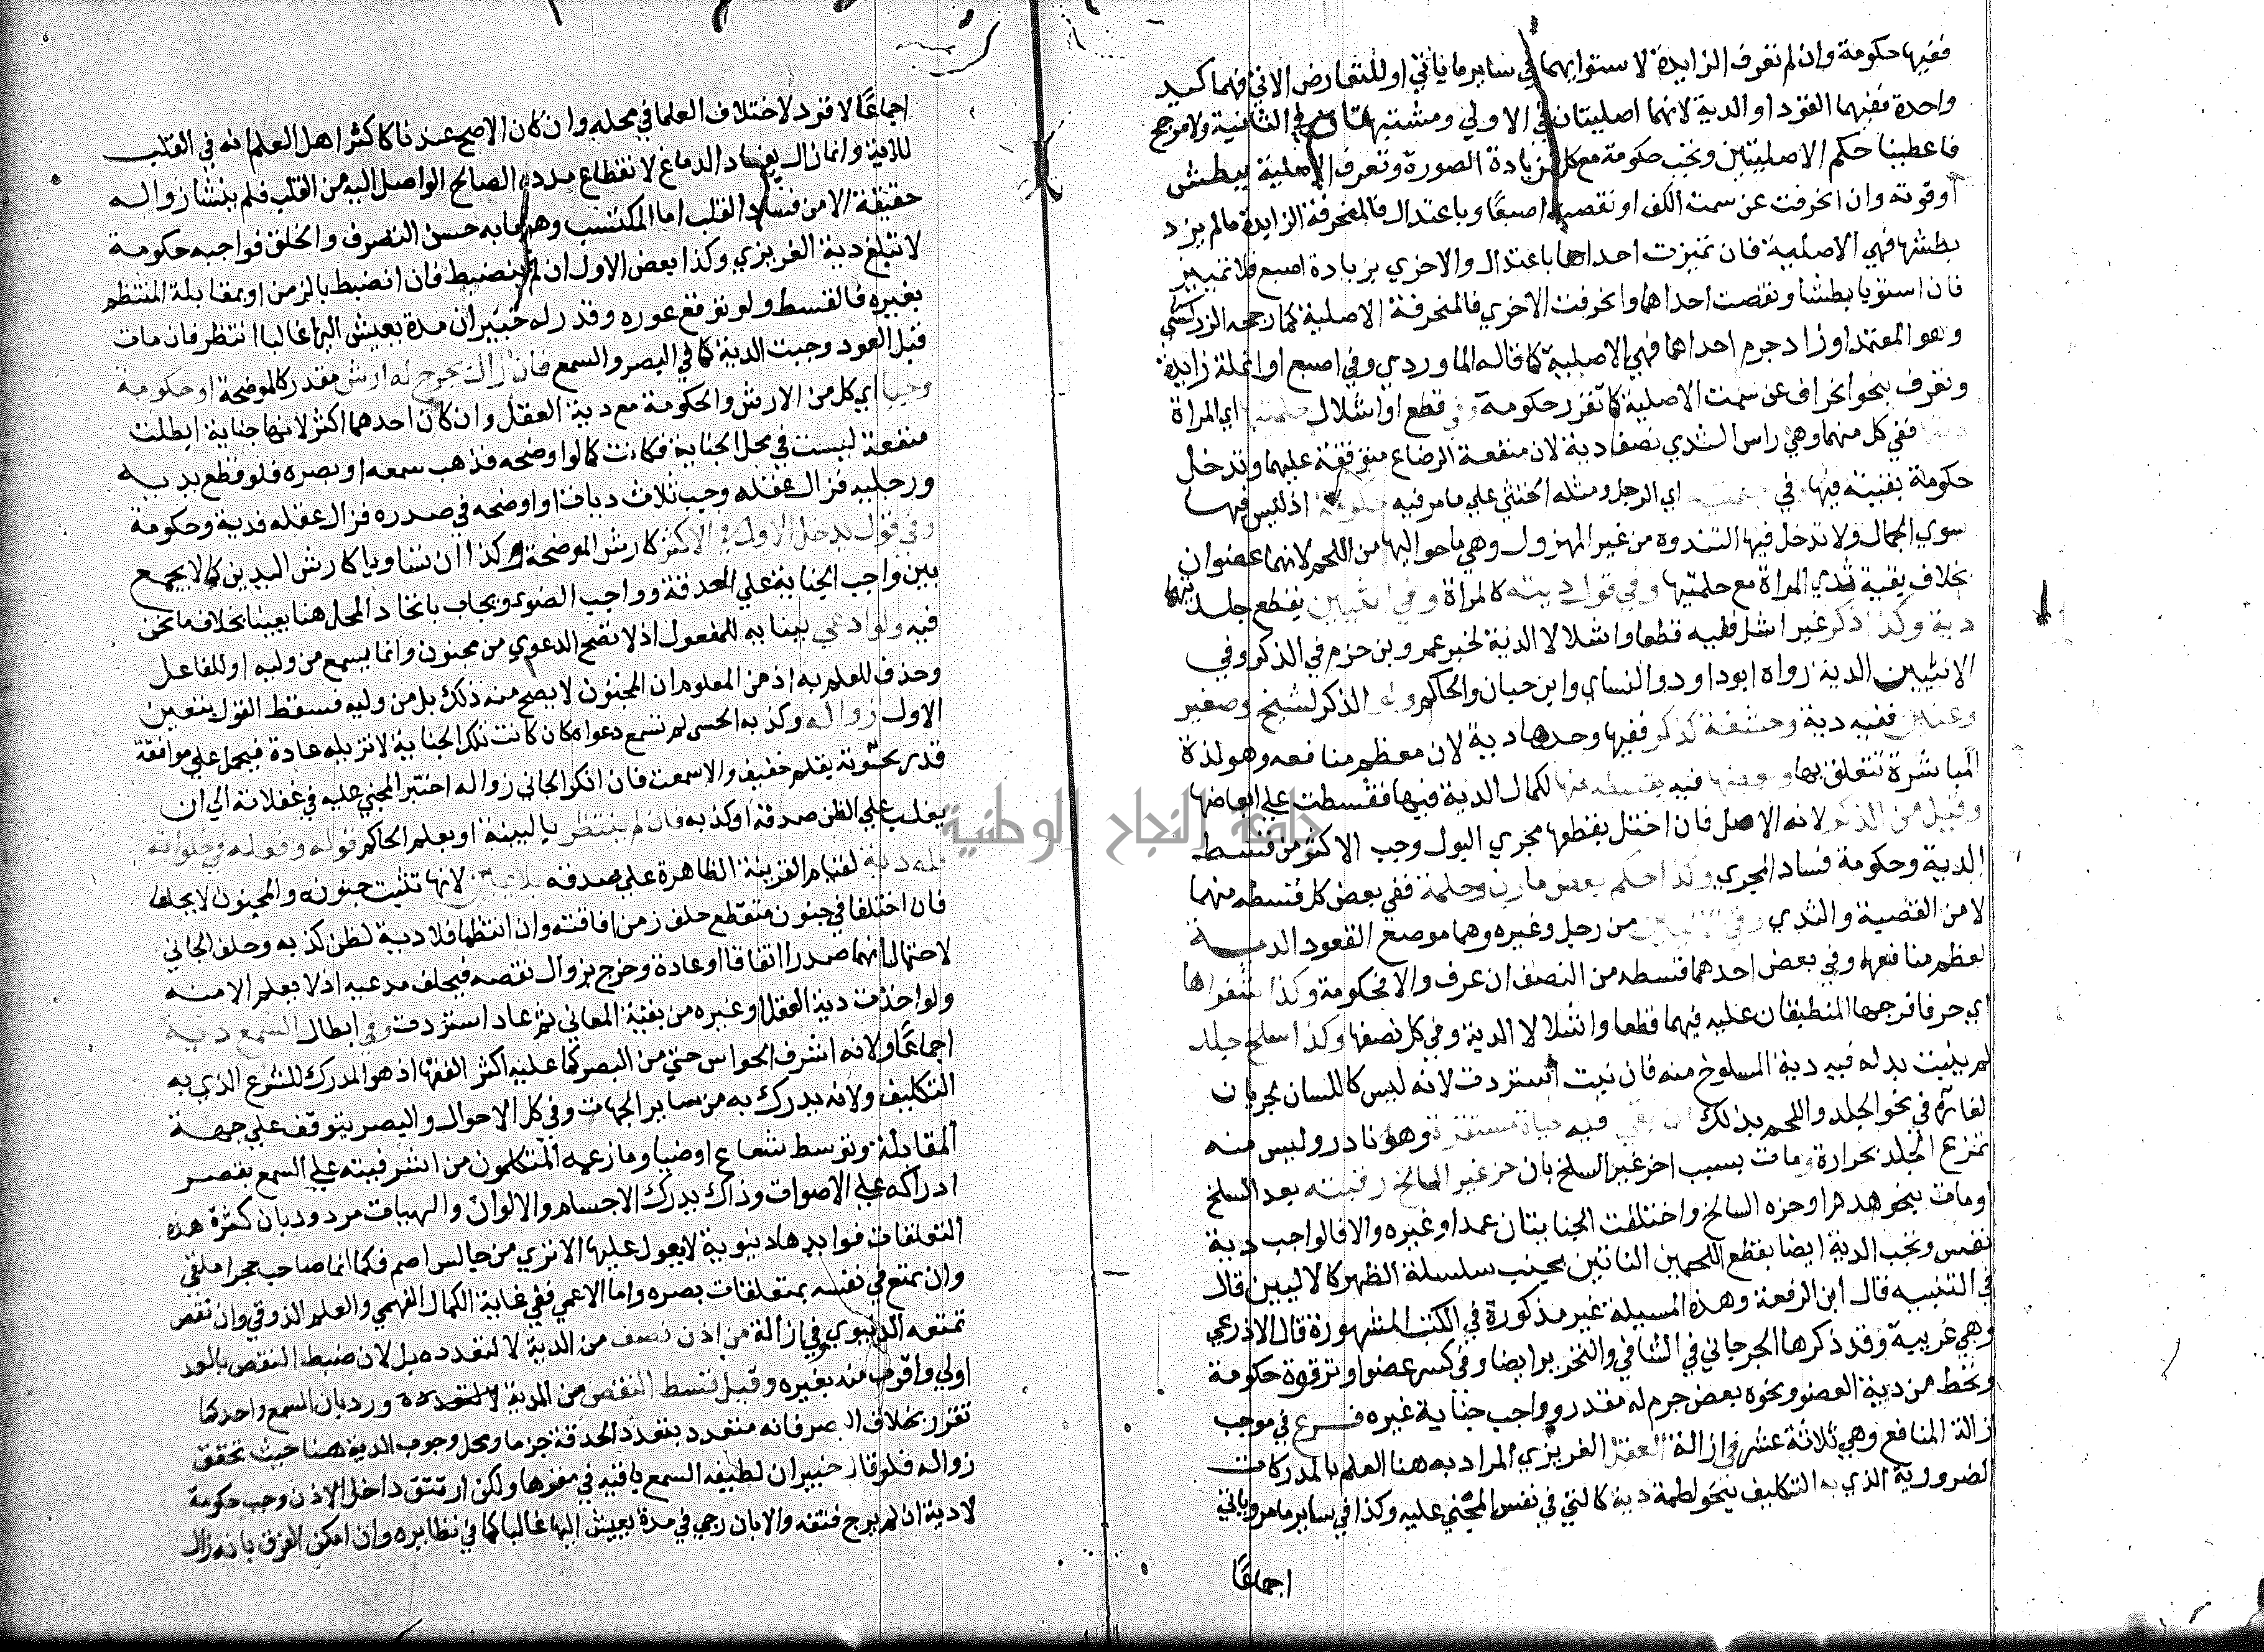 ففيها حكومة وان لم تعرف الزايدة لاستوايهما في ساير ما ياتي او للتعارض الاتي فهما كيد
واحدة ففيهما القود او الدية لانهما اصليتان في الاولي ومشتبهتان في الثانية ولا مرجح
فاعطيتا حكم الاصليتين وتجب حكومة مع كل لزيادة الصورة وتعرف الاصلية ببطش
او قوته وان انحرفت عن سمت الكف او نقصت اصبعا وباعتدال فالمنحرفة الزايدة ما لم يزد
بطشها فهي الاصلية فان تميزت احداهما باعتدال والاخري بزيادة اصبع فلا تمييز
فان استويا بطشا ونقصت احداهما وانحرفت الاخري فالمنحرفة الاصلية كما رجحه الزركشي
وهو المعتمد او زاد جرم احداهما فهي الاصلية كما قاله الماوردي وفي اصبع او انملة زايدة
وتعرف بنحو انحراف عن سمت الاصلية كما تقرر حكومة وفي قطع او اشلال حلمتيها اي المراة
ففي كل منهما وهي راس الثدي نصف دية لان منفعة الرضاع متوقفة عليهما وتدخل
حكومة بقيته فيها وفي اي الرجل ومثله الخنثي علي ما مر فيه حكومة اذ ليس فيها
سوي الجمال ولا تدخل فيها الثندوة من غير المهزول وهي ما حواليها من اللحم لانهما عضوان
بخلاف بقية ثدي المراة مع حلمتيها وفي قول ديته كالمراة وفي انثيين بقطع جلدتيهما
دية وكذا ذكر غير اشل ففيه قطعا واشلالا الدية لخبر عمرو بن حزم في الذكر وفي
الانثيين الدية رواه ابو داود والنساي وابن حبان والحاكم ولو الذكر لشيخ وصغير
وعنين ففيه دية وحشفة كذكر ففيها وحدها دية لان معظم منافعه وهو لذة
المباشرة تتعلق بها وبعضها فيه بقسطه منها لكمال الدية فيها فقسطت علي ابعاضها
وقيل من الذكر لانه الاصل فان اختل بقطعها مجري البول وجب الاكثر من قسط
الدية وحكومة فساد المجري وكذا حكم بعض مارن وحلمة ففي بعض كل قسطه منهما
لا من القصبة والثدي وفي الاليين من رجل وغيره وهما موضع القعود الدية
لعظم منافعها وفي بعض احدهما قسطه من النصف ان عرف والا فحكومة وكذا شفراها
اي حرفا فرجها المنطبقان عليه فيهما قطعا واشلالا الدية وفي كل نصفها وكذا سلخ جلد
لم ينبت بدله فيه دية المسلوخ منه فان نبت استردت لانه ليس كاللسان لجريان
العادة في نحو الجلد واللحم بذلك ان بقي فيه حياة مستقرة وهو نادر وليس منه
تمزع الجلد بحرارة ومات بسبب اخر غير السلخ بان حز غير السالخ رقبته بعد السلخ
او مات بنحو هدم او حزه السالخ واختلفت الجنايتان عمدا وغيره والا فالواجب دية
نفس وتجب الدية ايضا بقطع اللحمين الناتين بجنب سلسلة الظهر كالاليين قال
في التنبيه قال ابن الرفعة وهذه المسيلة غير مذكورة في الكتب المشهورة قال الاذرعي
وهي غريبة وقد ذكرها الجرجاني في الشافي والتحرير ايضا وفي كسر عضو او ترقوة حكومة
ويحط من دية العضو ونحوه بعض جرم له مقدر وواجب جناية غيره فرع في موجب
ازالة المنافع وهي ثلاثة عشر في ازالة العقل الغريزي المراد به هنا العلم بالمدركات
الضرورية الذي به التكليف بنحو لطمة دية كالتي في نفس المجني عليه وكذا في ساير ما مر وياتي
اجماعا
اجماعا لا قود لاختلاف العلما في محله وان كان الاصح عندنا كاكثر اهل العلم انه في القلب
للاية وانما زال بفساد الدماغ لانقطاع مدد الصالح الواصل اليه من القلب فلم ينشا زواله
حقيقة الا من فساد القلب اما المكتسب وهو ما به حسن التصرف والخلق فواجبه حكومة
لا تبلغ دية الغريزي وكذا بعض الاول ان لم ينضبط فان انضبط بالزمن او بمقابلة المنتظم
بغيره فالقسط ولو توقع عوده وقدر له خبيران مدة يعيش اليها غالبا انتظر فان مات
قبل العود وجبت الدية كما في البصر والسمع فان زال بجرح له ارش مقدر كالموضحة او حكومة
وجبا اي كل من الارش والحكومة مع دية العقل وان كان احدهما اكثر لانها جناية ابطلت
منفعة ليست في محل الجناية فكانت كما لو اوضحه فذهب سمعه او بصره فلو قطع يديه
ورجليه فزال عقله وجب ثلاث ديات او اوضحه في صدره فزال عقله فدية وحكومة
وفي قول يدخل الاول في الاكثر كارش الموضحة وكذا ان تساويا كارش اليدين كما لا يجمع
بين واجب الجناية علي الحدقة وواجب الضوء ويجاب باتحاد المحل هنا يقينا بخلاف ما نحن
فيه ولو ادعي ببنايه للمفعول اذ لا تصح الدعوي من مجنون وانما يسمع من وليه او للفاعل
وحذف للعلم به اذ من المعلوم ان المجنون لا يصح منه ذلك بل من وليه فسقط القول بتعين
الاول زواله وكذبه الحس لم تسمع دعواه كان كانت تلك الجناية لا تزيله عادة فيحمل علي موافقة
قدر كموته بقلم خفيف والا سمعت فان انكر الجاني زواله اختبر المجني عليه في غفلاته الي ان
يغلب علي الظن صدقه او كذبه فان لم ينتظم بالبينة او بعلم الحاكم قوله وفعله في خلواته
فله دية لقيام القرينة الظاهرة علي صدقه بلا يمين لانها تثبت جنونه والمجنون لا يحلف
فان اختلفا في جنون متقطع حلف زمن افاقته وان انتظما فلا دية لظن كذبه وحلف الجاني
لاحتمال انهما صدرا اتفاقا او عادة وخرج بزوال نقصه فيحلف مدعيه اذ لا يعلم الا منه
ولو اخذت دية العقل او غيره من بقية المعاني ثم عاد استردت وفي ابطال السمع دية
اجماعا ولانه اشرف الحواس حتي من البصر كما عليه اكثر الفقها اذ هو المدرك للشرع الذي به
التكليف ولانه يدرك به من ساير الجهات وفي كل الاحوال والبصر يتوقف علي جهة
المقابلة وتوسط شعاع او ضيا وما زعمه المتكلمون من اشرفيته علي السمع بقصر
ادراكه علي الاصوات وذاك يدرك الاجسام والالوان والهيات مردود بان كثرة هذه
التعلقات فوايدها دنيوية لا يعول عليها الا تري من جالس اصم فكانما صاحب حجرا ملقي
وان تمتع في نفسه بمتعلقات بصره واما الاعمي ففي غاية الكمال الفهمي والعلم الذوقي وان نقص
تمتعه الدنيوي وفي ازالة من اذن نصف من الدية لا لتعدده بل لان ضبط النقص بالعد
اولي واقرب منه بغيره وقيل قسط النقص من الدية ورد بان السمع واحد كما
تقرر بخلاف البصر فانه متعدد بتعدد الحدقة جزما ومحل وجوب الدية هنا حيث تحقق
زواله فلو قال خبيران لطيفه السمع باقية في مقرها ولكن ارتتق داخل الاذن وجب حكومة
لا دية ان لم يرج فتقه والا بان رجي في مدة يعيش اليها غالبا كما في نظايره وان امكن الفرق بانه زال
جامعة النجاح الوطنية